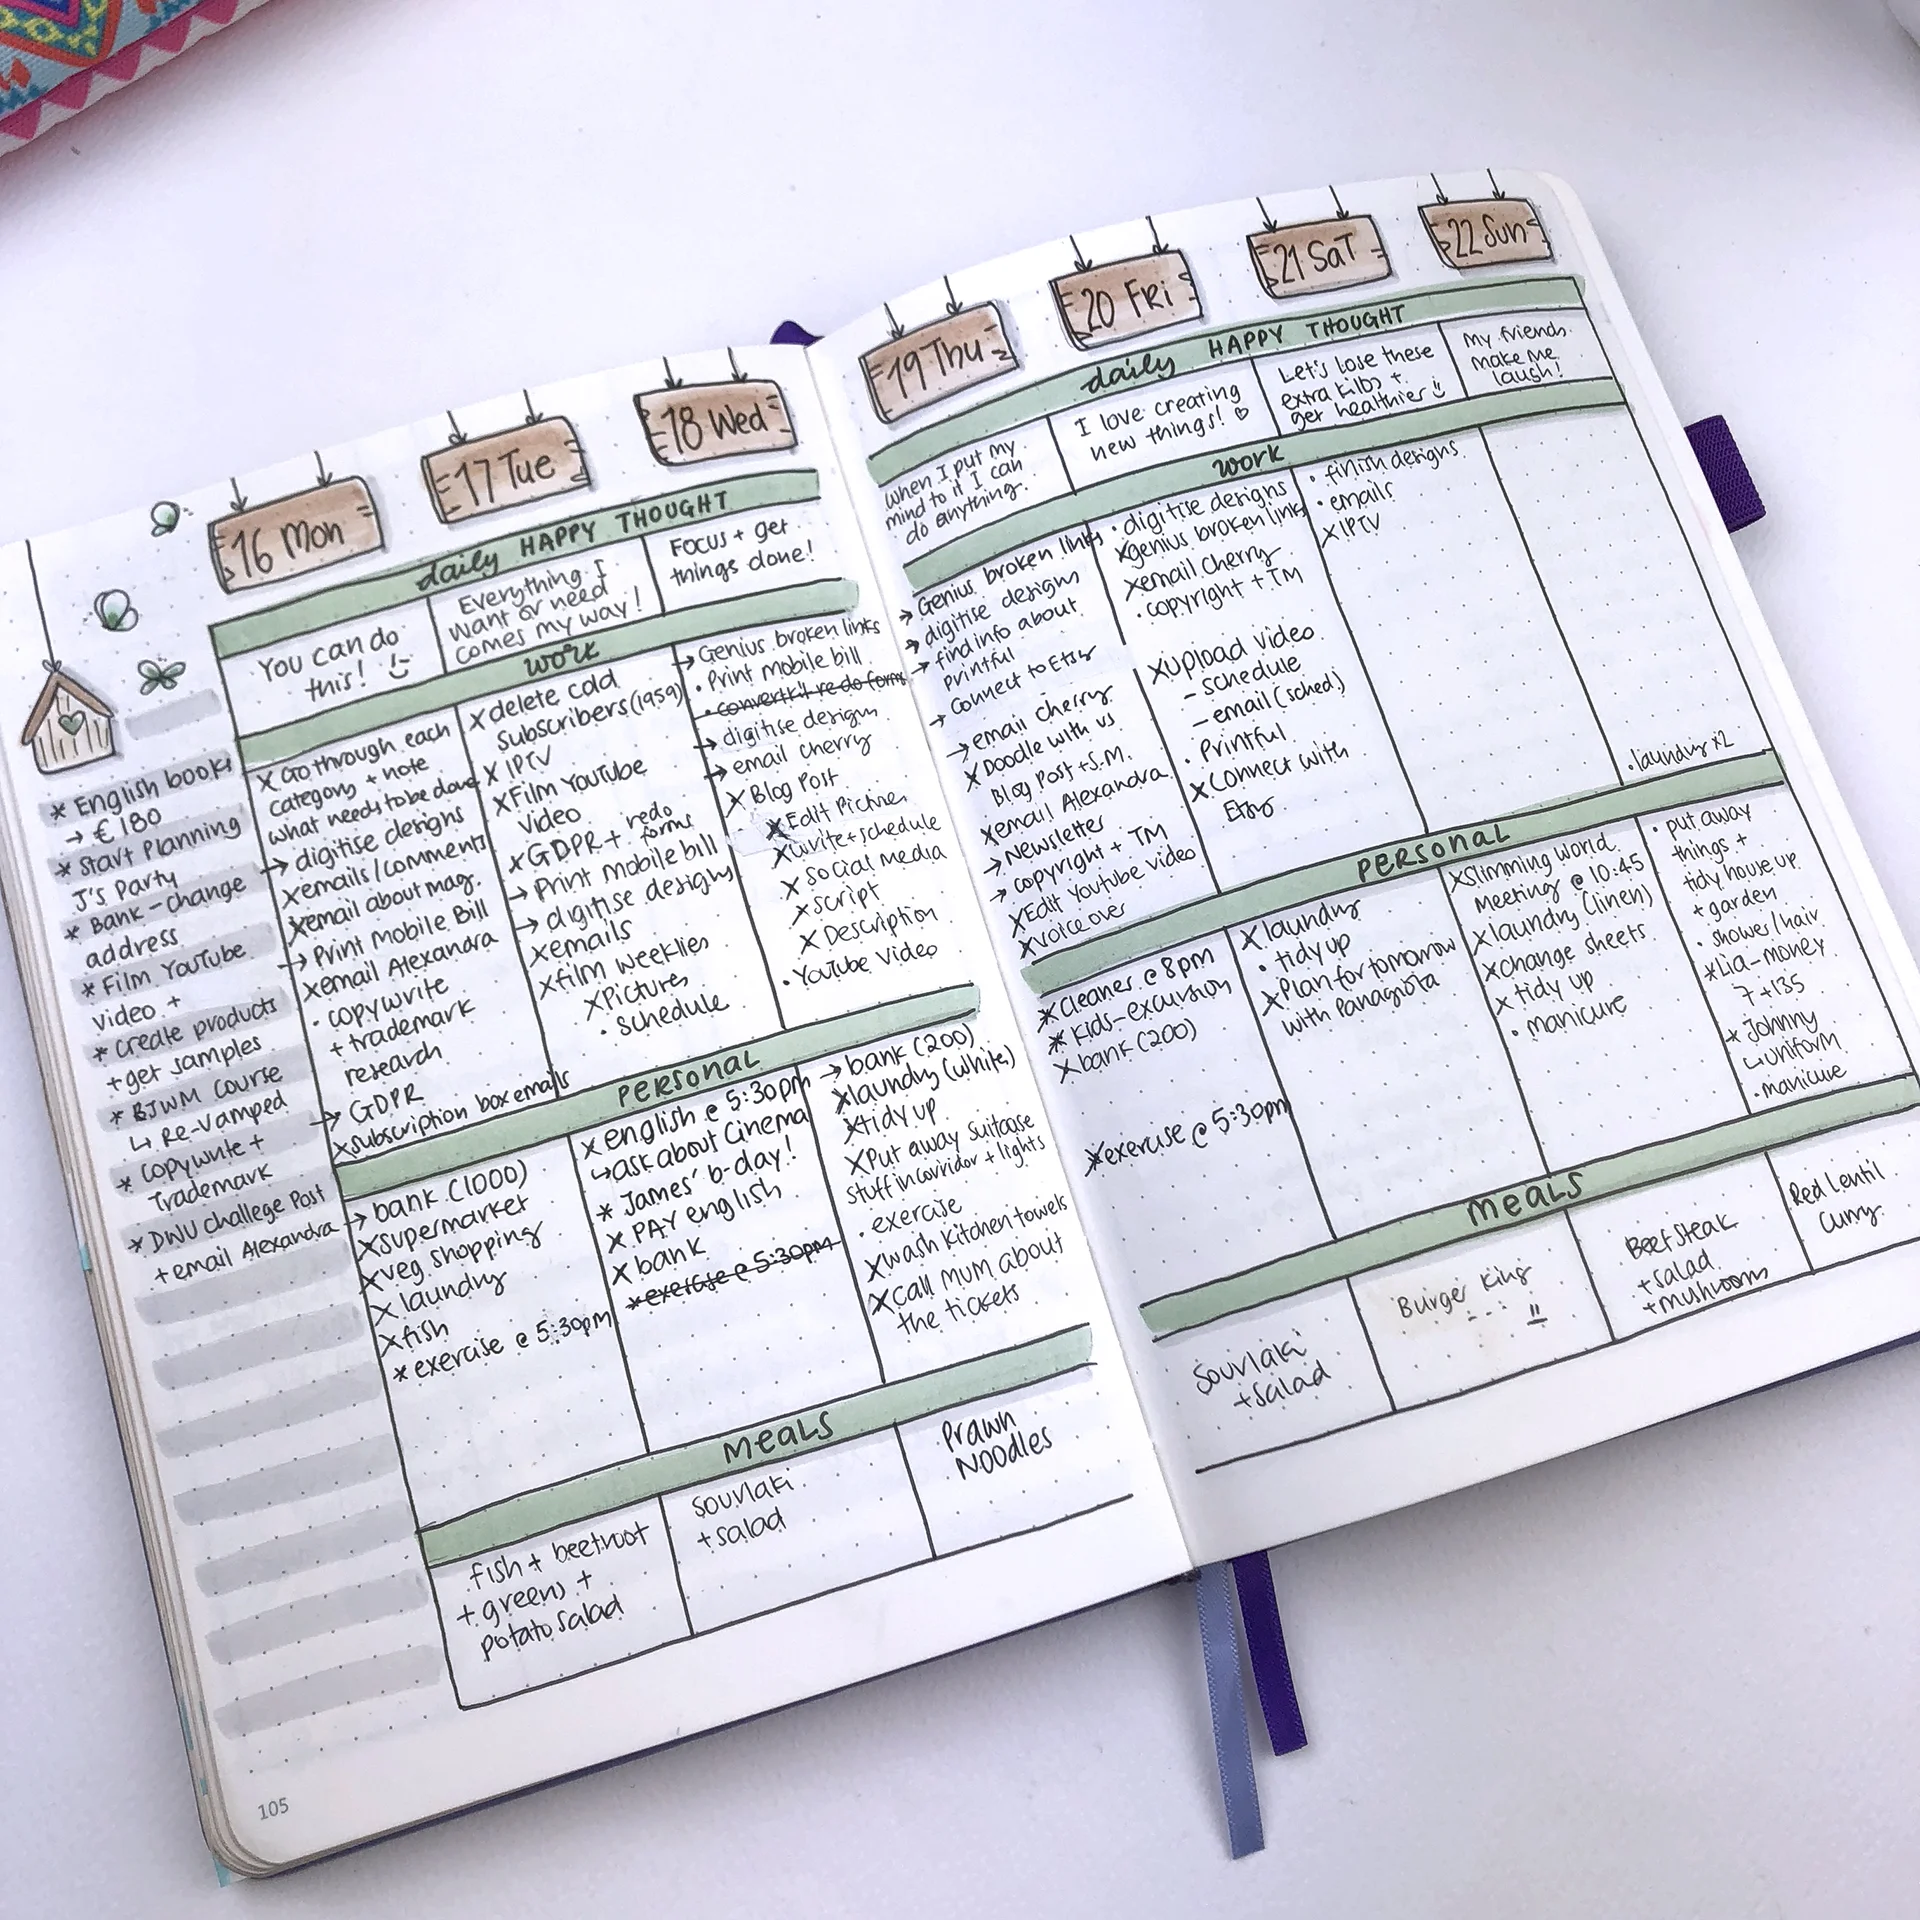 16 Mon
17 Tue
18 Wed
daily HAPPY THOUGHT
You can do
this!
Everything I
want or need
comes my way!
Focus + get
things done!
* English books
→ €180
* Start Planning
J's Party
* Bank - change
address
* Film YouTube
video +
* create products
+ get samples
* BJWM course
↳ Re-vamped
* copywrite +
Trademark
* DWU challege Post
+ email Alexandra
work
X Go through each
category + note
what needs to be done
→ digitise designs
X emails/comments
X email about mag.
→ Print Mobile Bill
X email Alexandra
• copywrite
+ trademark
research
→ GDPR
X subscription box emails
X delete cold
subscribers (1959)
X IPTV
X Film YouTube
video
X GDPR + redo
forms
→ Print mobile bill
→ digitise designs
X emails
X film weeklies
X Pictures
• schedule
→ Genius broken links
• Print mobile bill
• convertkit redo forms
→ digitise designs
→ email cherry
X Blog Post
X Edit Pictures
X write + schedule
X social media
X script
X Description
• YouTube Video
Personal
→ bank (1000)
X supermarket
X veg shopping
X laundry
X fish
* exercise @ 5:30pm
X english @ 5:30pm
↳ ask about Cinema
* James' b-day!
X PAY english
X bank
* exercise @ 5:30pm
→ bank (200)
X laundry (white)
X tidy up
X Put away suitcase
stuff in corridor + lights
• exercise
X wash kitchen towels
X call mum about
the tickets
Meals
fish + beetroot
+ greens +
potato salad
souvlaki
+ salad
Prawn
Noodles
105
19 Thu
20 Fri
21 Sat
22 Sun
daily HAPPY THOUGHT
when I put my
mind to it I can
do anything.
I love creating
new things!
Let's lose these
extra kilos +
get healthier
My friends
make me
laugh!
work
→ Genius broken links
→ digitise designs
→ find info about
printful
→ connect to Etsy
→ email cherry
X Doodle with us
Blog Post + S.M.
X email Alexandra
→ Newsletter
→ copyright + TM
X Edit Youtube video
X voice over
• digitise designs
X genius broken links
X email cherry
• copyright + TM
X upload video
- schedule
- email (sched.)
• Printful
X Connect with
Etsy
• finish designs
• emails
X IPTV
• laundry x2
Personal
* cleaner @ 8pm
* kids - excursion
X bank (200)
* exercise @ 5:30pm
X laundry
• tidy up
X Plan for tomorrow
with Panagiota
X Slimming World
meeting @ 10:45
X laundry (linen)
X change sheets
X tidy up
• manicure
• put away
things +
tidy house up
+ garden
• shower/hair
* Lia - money
7 + 135
* Johnny
↳ uniform
• manicure
Meals
Souvlaki
+ salad
Burger King
Beef steak
+ salad
+ mushrooms
Red Lentil
Curry